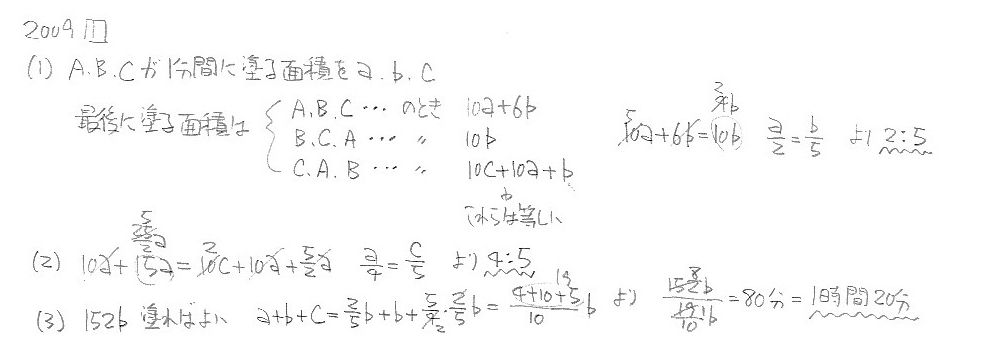 2009 1
(1) A.B.Cが1分間に塗る面積をa.b.c
最後に塗る面積は
A.B.C… のとき 10a+6b
B.C.A… 〃 10b
C.A.B… 〃 10c+10a+b
これらは等しい
10a+6b=10b a/2=b/5 より 2:5
(2) 10a+15a=10c+10a+5/2a a/4=c/5 より 4:5
(3) 152b 塗ればよい a+b+c=2/5b+b+5/4・2/5b=4+10+5/10b より 152b/19/10b=80分=1時間20分